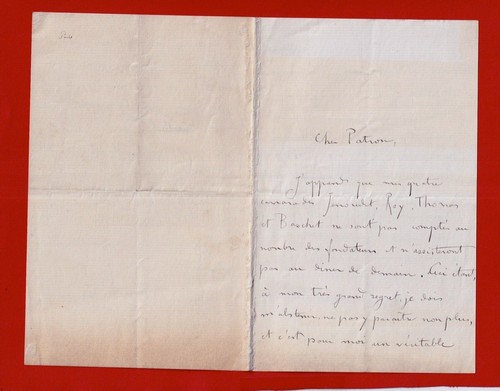 Cher Patron,
J'apprends que mes quatre
camarades Jeanniot, Roy, Thomas
et Baschet ne sont pas comptés au
nombre des fondateurs et n'assisteront
pas au diner de demain. Ceci étant,
à mon très grand regret, je dois
m'abstenir, ne pas y paraître non plus,
et c'est pour moi un véritable